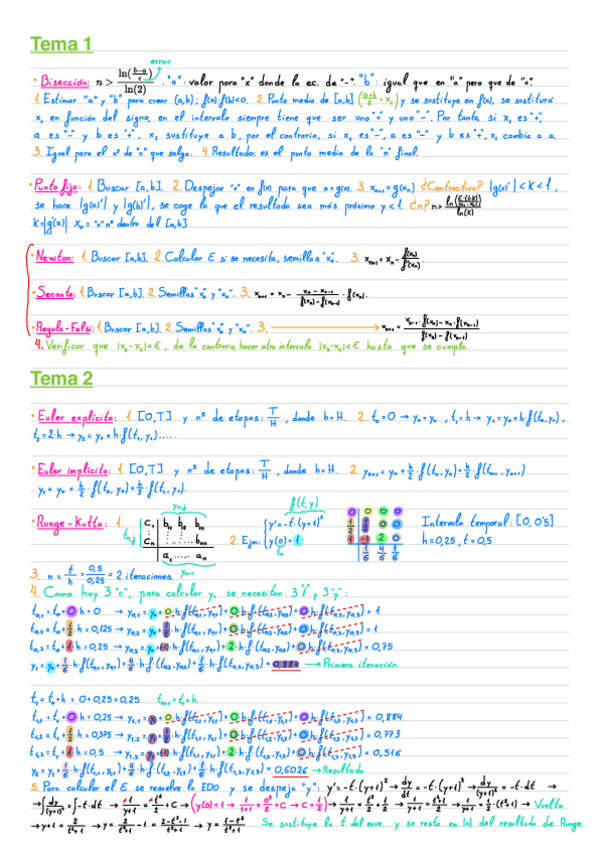 Tema 1
error
· Bisección: n > ln((b-a)/ε)/ln(2) . "a": valor para "x" donde la ec. da "-". "b": igual que en "a" pero que de "+".
1. Estimar "a" y "b" para crear (a,b); f(a)·f(b)<0. 2. Punto medio de [a,b] ((a+b)/2 = x₁) y se sustituye en f(x), se sustituirá
x₁ en función del signo, en el intervalo siempre tiene que ser uno "+" y uno "-". Por tanto, si x₁ es "+",
a es "-" y b es "+", x₁ sustituye a b, por el contrario, si x₁ es "-", a es "-" y b es "+", x₁ cambia a a.
3. Igual para el nº de "n" que salga. 4. Resultado: es el punto medio de la "n" final.
· Punto fijo: 1. Buscar [a,b]. 2. Despejar "x" en f(x) para que x=g(x). 3. xₙ₊₁=g(xₙ) ¿Contractiva? |g(x)'| < K < 1,
se hace |g(a)'| y |g(b)'|, se coge la que el resultado sea más próximo y < 1. ¿n? n >
K=|g'(x)| x₀ = "x" nº dentro del [a,b]
· Newton: 1. Buscar [a,b]. 2. Calcular ε si se necesita, semillas "x₀". 3. xₙ₊₁ = xₙ - f(xₙ)/f'(xₙ)
· Secante: 1. Buscar [a,b]. 2. Semillas "x₀" y "x₁". 3. xₙ₊₁ = xₙ - (xₙ - xₙ₋₁)/(f(xₙ)-f(xₙ₋₁)) · f(xₙ).
· Regula-Falsi: 1. Buscar [a,b]. 2. Semillas "x₀" y "x₁". 3. → xₙ₊₁ = (xₙ₋₁·f(xₙ)-xₙ·f(xₙ₋₁))/(f(xₙ)-f(xₙ₋₁))
4. Verificar que |x₂-x₁|<ε, de lo contrario, hacer otro intervalo |x₃-x₂|<ε hasta que se cumpla.
Tema 2
· Euler explícito: 1. [0,T] y nº de etapas: T/H, donde h=H. 2. t₀=0 → y₀=y₀, t₁=h → y₁=y₀+h·f(t₀,y₀),
t₂=2·h → y₂=y₁+h·f(t₁,y₁).....
· Euler implícito: 1. [0,T] y nº de etapas: T/H, donde h=H. 2. yₙ₊₁=yₙ+h/2·f(tₙ,yₙ)+h/2·f(tₙ₊₁,yₙ₊₁)
y₁=y₀+h/2·f(t₀,y₀)+h/2·f(t₁,y₁).
yₙ,ⱼ f(t,y)
· Runge-Kutta: 1. tₙ,ⱼ c₁ b₁ b₂ bₙ 2. Ejm: y'=-t·(y+1)² 0 0 0 0 Intervalo temporal: [0, 0'5]
cₙ ..... bₙₙ y(0)=1 1/2 1/2 0 0 h=0,25, t=0,5
a₁ ..... aₙ t₀ 1 -1 2 0
yₙ₊₁ 1/6 4/6 1/6
3. n = t/h = 0,5/0,25 = 2 iteraciones
4. Como hay 3 "c", para calcular y₁ se necesitan 3 "t" y 3 "y":
t₀,₁ = t₀+0·h = 0 → y₀,₁ = y₀+0·h·f(t₀,₁,y₀,₁)+0·h·f(t₀,₂,y₀,₂)+0·h·f(t₀,₃,y₀,₃) = 1
t₀,₂ = t₀+1/2·h = 0,125 → y₀,₂ = y₀+1/2·h·f(t₀,₁,y₀,₁)+0·h·f(t₀,₂,y₀,₂)+0·h·f(t₀,₃,y₀,₃) = 1
t₀,₃ = t₀+1·h = 0,25 → y₀,₃ = y₀+(-1)·h·f(t₀,₁,y₀,₁)+2·h·f(t₀,₂,y₀,₂)+0·h·f(t₀,₃,y₀,₃) = 0,75
y₁ = y₀+1/6·h·f(t₀,₁,y₀,₁)+4/6·h·f(t₀,₂,y₀,₂)+1/6·h·f(t₀,₃,y₀,₃) = 0,884 → Primera iteración.
t₁ = t₀+h = 0+0,25 = 0,25 tₙ₊₁ = tₙ+h.
t₁,₁ = t₁+0·h = 0,25 → y₁,₁ = y₁+0·h·f(t₁,₁,y₁,₁)+0·h·f(t₁,₂,y₁,₂)+0·h·f(t₁,₃,y₁,₃) = 0,884
t₁,₂ = t₁+1/2·h = 0,375 → y₁,₂ = y₁+1/2·h·f(t₁,₁,y₁,₁)+0·h·f(t₁,₂,y₁,₂)+0·h·f(t₁,₃,y₁,₃) = 0,773
t₁,₃ = t₁+1·h = 0,5 → y₁,₃ = y₁+(-1)·h·f(t₁,₁,y₁,₁)+2·h·f(t₁,₂,y₁,₂)+0·h·f(t₁,₃,y₁,₃) = 0,516
y₂ = y₁+1/6·h·f(t₁,₁,y₁,₁)+4/6·h·f(t₁,₂,y₁,₂)+1/6·h·f(t₁,₃,y₁,₃) = 0,6026 → Resultado
5. Para calcular el ε se resuelve la EDO y se despeja "y": y'=-t·(y+1)² → dy/dt = -t·(y+1)² → dy/(y+1)² = -t·dt →
→ ∫dy/(y+1)² = ∫-t·dt → -1/(y+1) = -t²/2 + C → (y(0)=1 → 1/(1+1) = 0²/2 + C → C = 1/2) → 1/(y+1) = t²/2 + 1/2 → 1/(y+1) = (t²+1)/2 → 1/(y+1) = 1/2·(t²+1) → Vuelta
→ y+1 = 2/(t²+1) → y = 2/(t²+1) - 1 = (2-t²-1)/(t²+1) → y = (1-t²)/(t²+1) Se sustituye la t del enun. y se resta en |x| del resultado de Runge.